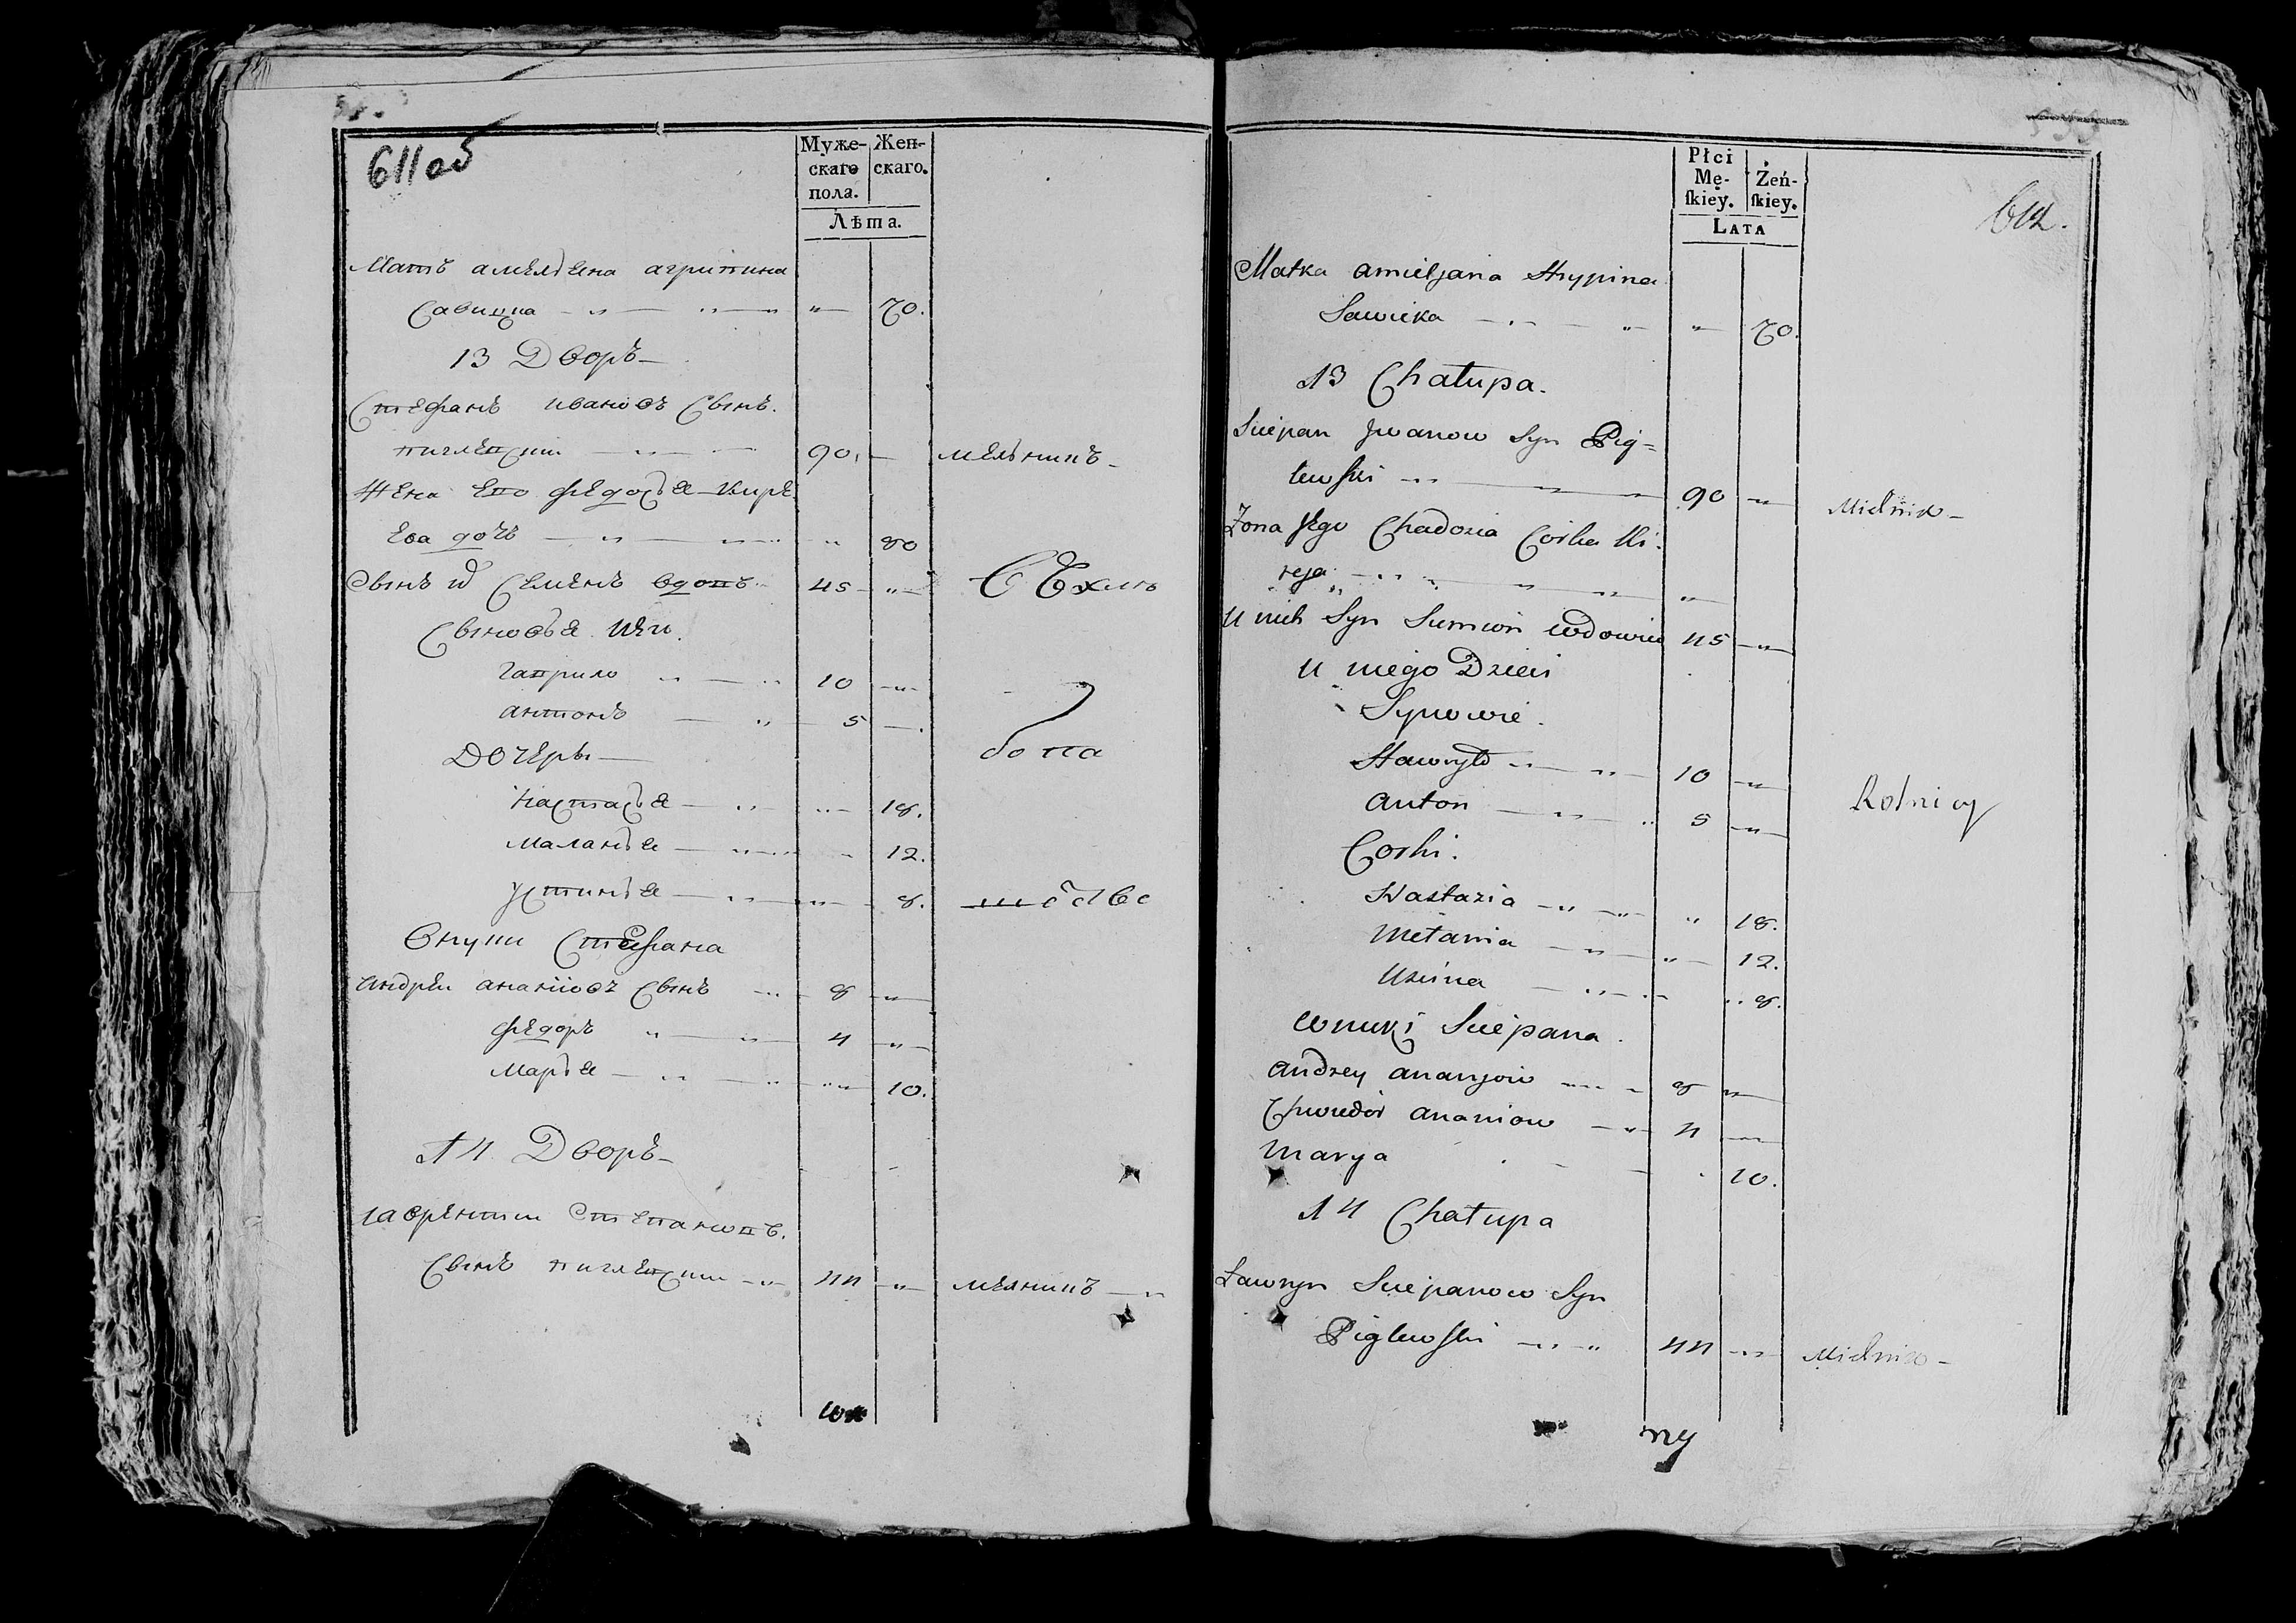 611 об
Муже- Жен-
скаго скаго.
пола.
Лѣта.
Мать амельяна агрипина
Савицка 70.
13 Дворъ
Стефанъ ивановъ Сынъ
пиглевский 90. мельникъ
Жена Его федосья Кире
Ева дочъ 80
Сынъ их Семенъ вдовъ 45 С Ѣхлѣ
Сыновья ихъ
гаврило 10
антонъ 5
бопа
Дочеры
Настасья 18.
Маланья 12.
устинья 8.
Внуки Стефана
андрѣи ананіовъ Сынъ 8
федоръ 4
Марья 10.
14 Дворъ
лаврентии Степановъ
Сынъ пиглевски 44 мелникъ
612.
Płci
Mę- Żeń-
skiey. skiey.
LATA
Matka amieljana Hrypina
Sawicka 70.
13 Chałupa.
Sciepan Jwanow Syn Pig=
lewski 90 Mielnik
Żona Jego Chadozia Corka Ki-
reja
U nich Syn Siemion wdowiec 45
U niego Dzieci
Synowie.
Hawryło 10
Anton 5 Rolnicy
Corki.
Nastazia 18.
Mełania 12.
Uscina 8.
Wnuki Sciepana.
Andrey ananjow 8
Chwiedor ananiow 4
Marya 10.
14 Chałupa
Ławryn Sciepanow Syn
Piglewski 44 Mielnik